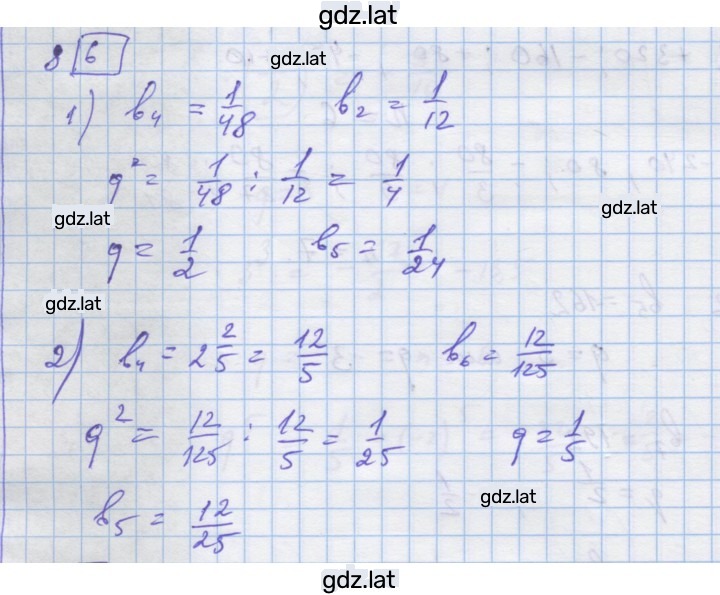 gdz.lat
8 6
gdz.lat
1) b₄ = 1/48 b₂ = 1/12
q² = 1/48 : 1/12 = 1/4
gdz.lat
gdz.lat
q = 1/2 b₅ = 1/24
gdz.lat
2) b₄ = 2 2/5 = 12/5 b₆ = 12/125
q² = 12/125 : 12/5 = 1/25 q = 1/5
gdz.lat
b₅ = 12/25
gdz.lat